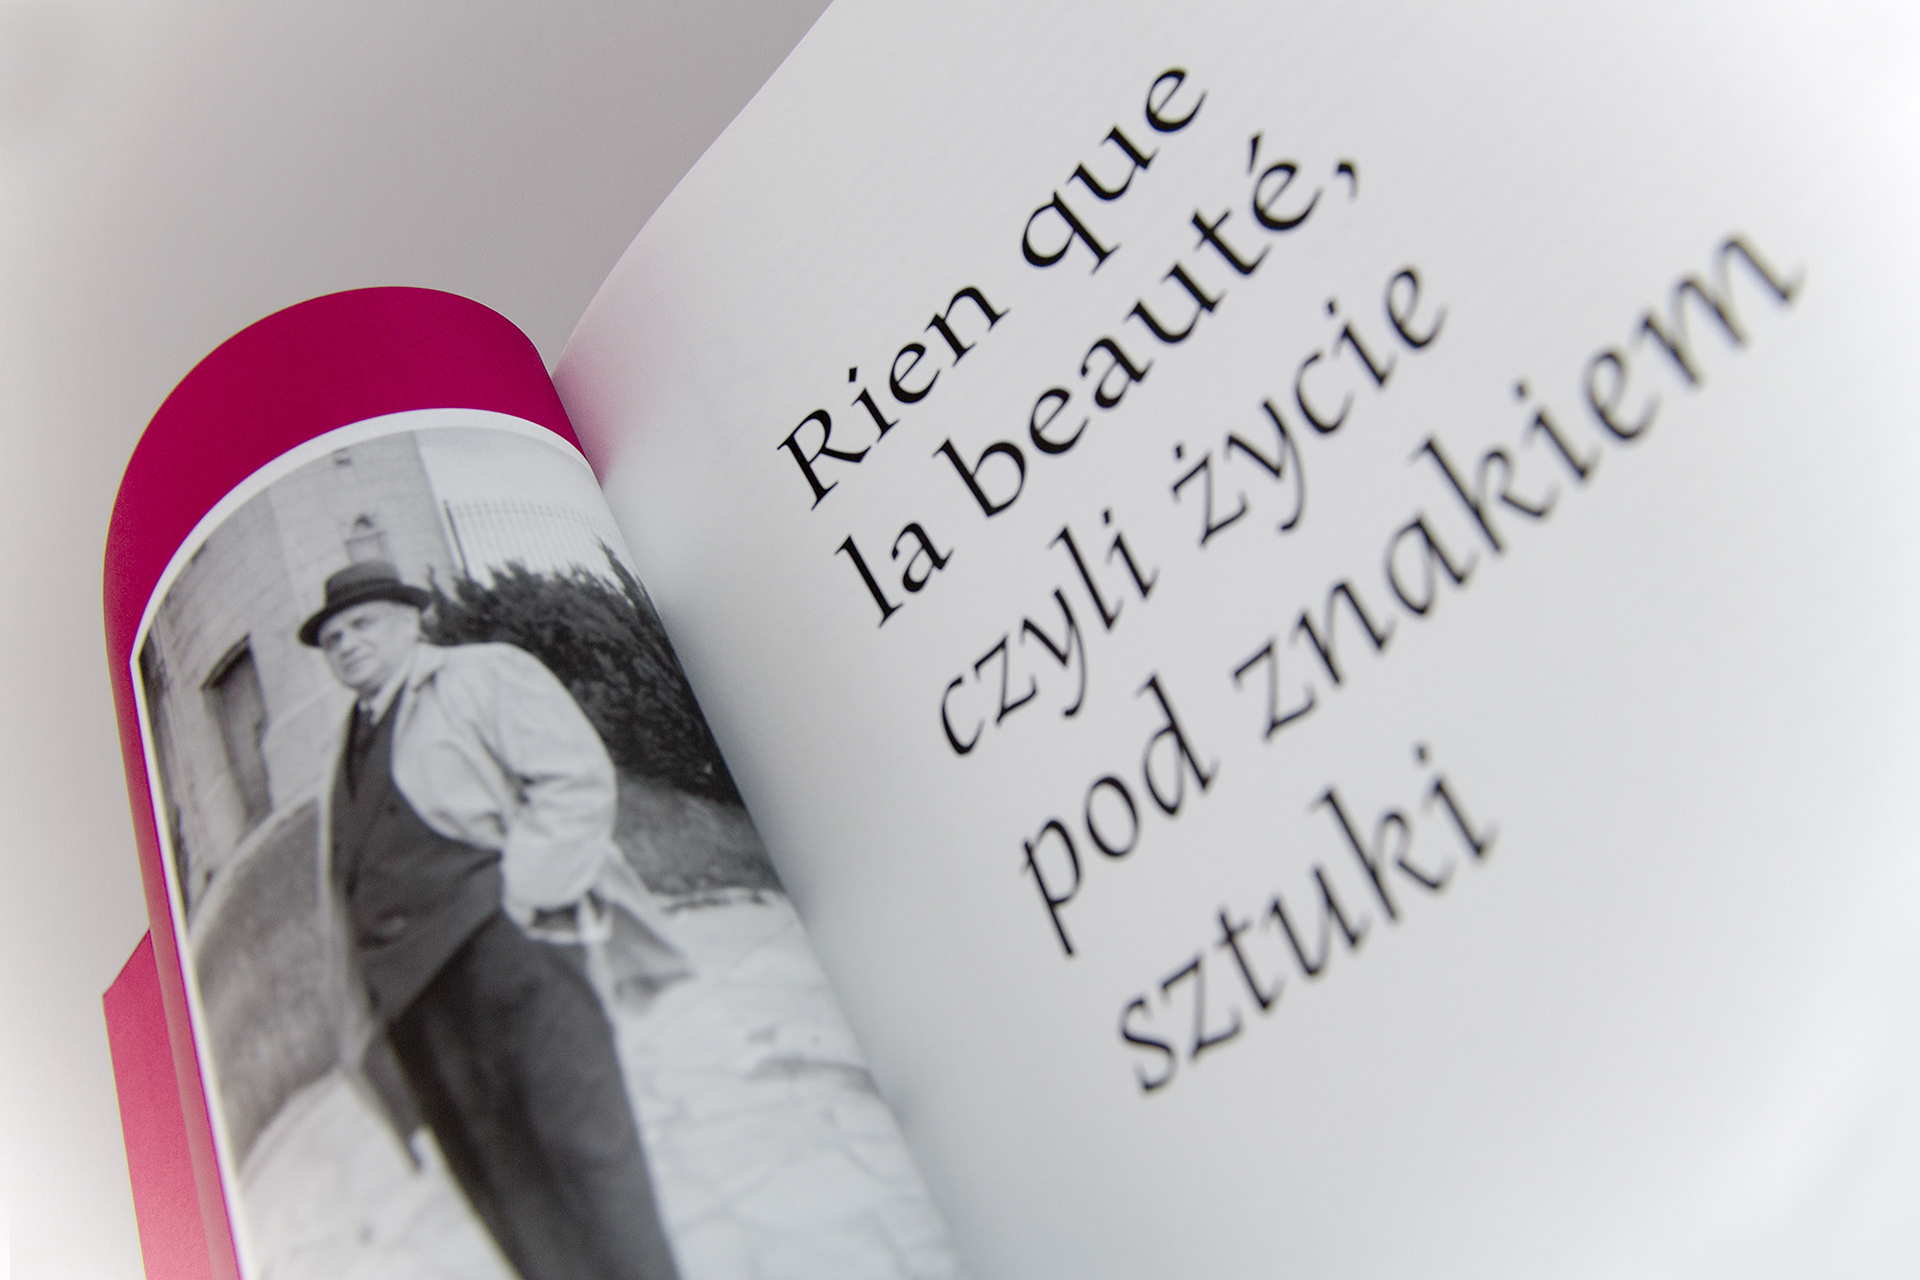 Rien que
la beauté,
czyli życie
pod znakiem
sztuki